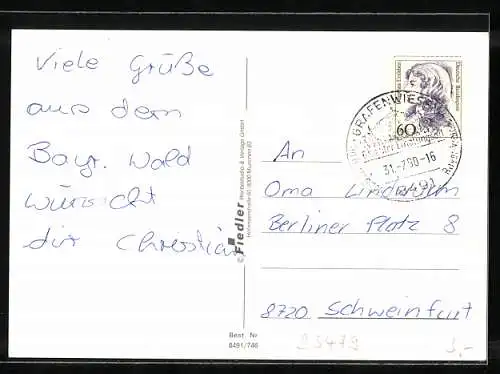 Viele Grüße
aus dem
Bayr. Wald
wünscht
dir Christian
© Fiedler
Best. Nr
8491/746
60
Deutsche Bundespost
GRAFENWIESEN
31.-7.90-16
8491
An
Oma Lindwurm
Berliner Platz 8
8720 Schweinfurt
93479
3,-